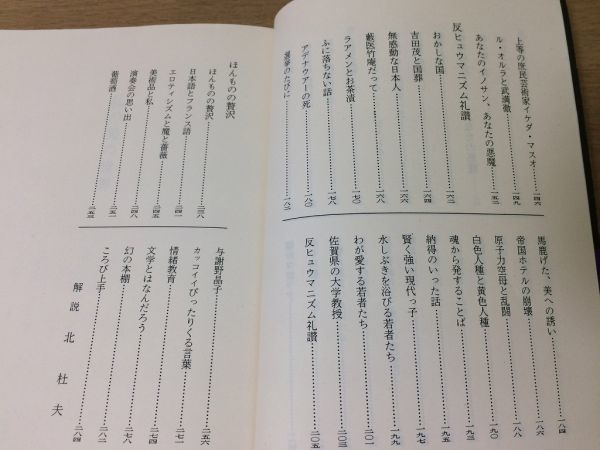 上等の庶民芸術家イケダ・マスオ……一四六
ル・オルラと武満徹……一四九
あなたのイノサン、あなたの悪魔……一五二
反ヒュウマニズム礼讃
おかしな国……一六二
吉田茂と国葬……一六四
無感動な日本人……一六六
藪医竹庵だって……一六八
ラアメンとお茶漬……一七六
ふに落ちない話……一七八
アデナウアーの死……一八〇
選挙のたびに……一八二
馬鹿げた、美への誘い……一八四
帝国ホテルの崩壊……一八六
原子力空母と乱闘……一八八
白色人種と黄色人種……一九〇
魂から発することば……一九三
納得のいった話……一九五
賢く強い現代っ子……一九七
水しぶきを浴びる若者たち……一九九
わが愛する若者たち……二〇一
佐賀県の大学教授……二〇三
反ヒュウマニズム礼讃……二〇五
ほんものの贅沢
ほんものの贅沢……二三八
日本語とフランス語……二四一
エロティシズムと魔と薔薇……二四三
美術品と私……二四五
演奏会の思い出……二四八
葡萄酒……二五一
与謝野晶子……二五六
カッコイイぴったりくる言葉……二七一
情緒教育……二七二
文学とはなんだろう……二七四
幻の本棚……二七八
ころび上手……二八二
解説 北杜夫……二八四